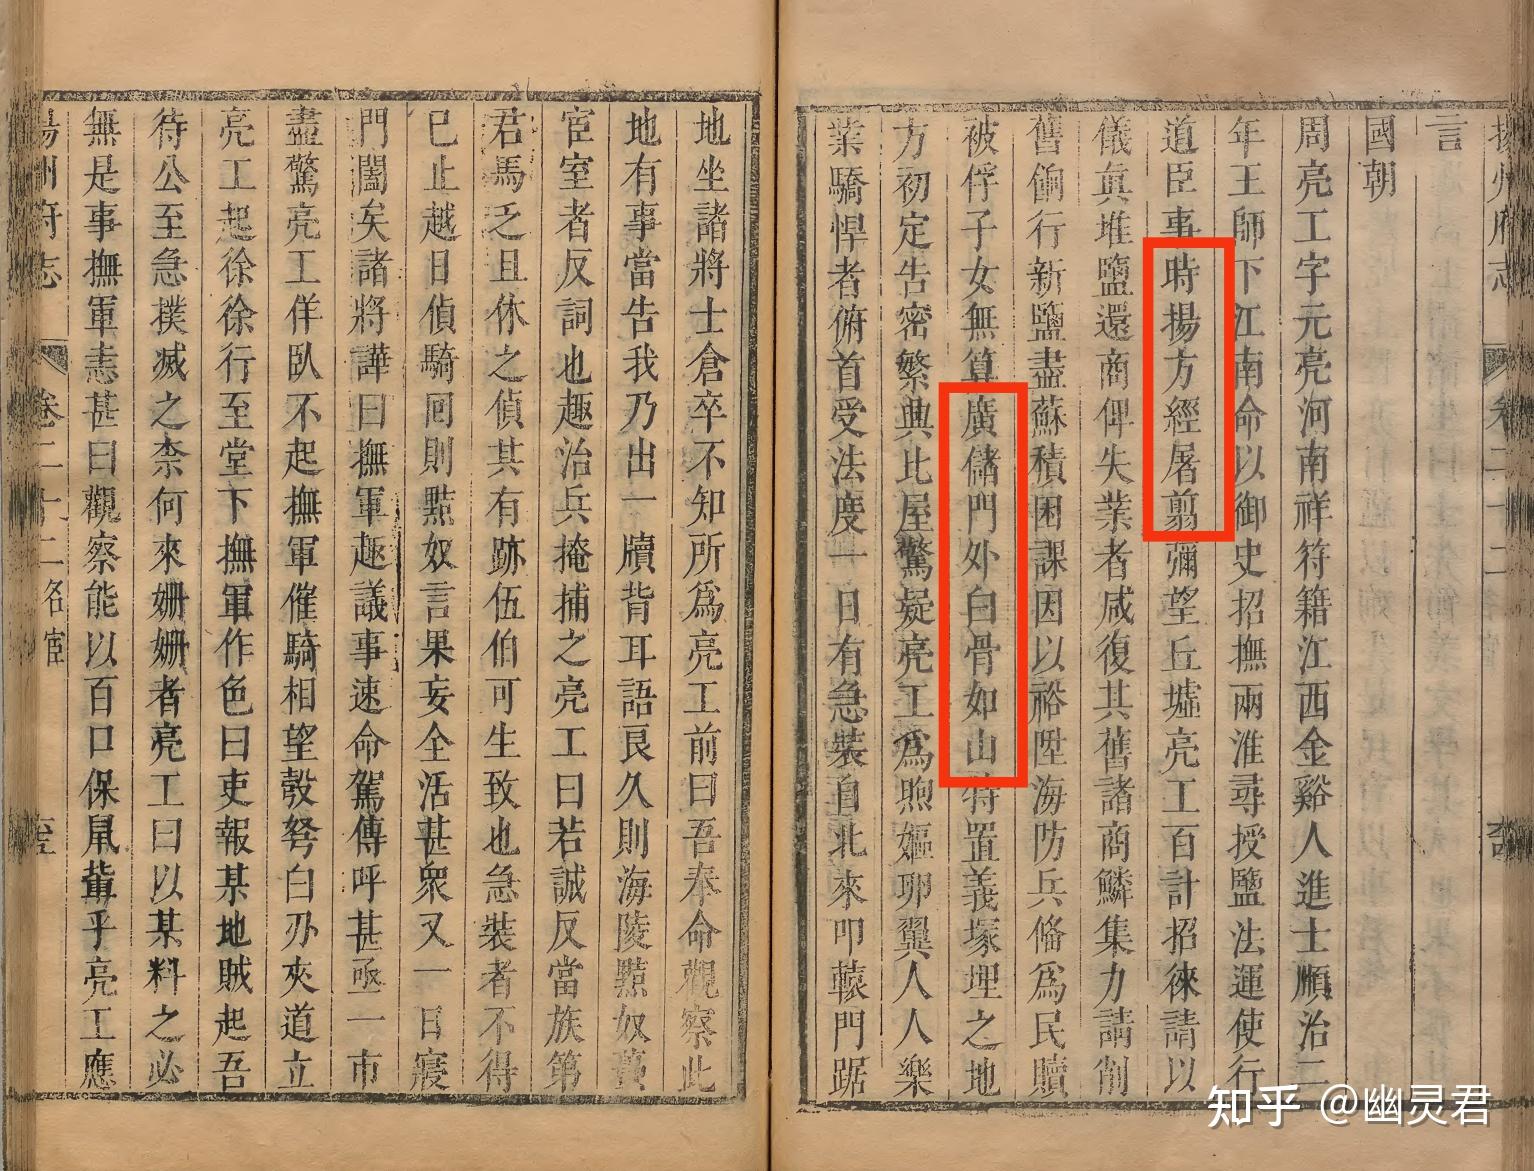 揚州府志
卷二十二
言
國朝
周亮工字元亮河南祥符籍江西金谿人進士順治二
年王師下江南命以御史招撫兩淮尋授鹽法運使行
道臣事時揚方經屠翦彌望丘墟亮工百計招徠請以
儀眞堆鹽還商俾失業者咸復其舊諸商鱗集力請削
舊餉行新鹽盡蘇積困課因以裕陞海防兵備爲民贖
被俘子女無算廣儲門外白骨如山特置義塚埋之地
方初定告密繁興比屋驚疑亮工爲煦嫗卵翼人人樂
業驕悍者俯首受法度一日有急裝自北來叩轅門踞
地坐諸將士倉卒不知所爲亮工前曰吾奉命觀察此
地有事當告我乃出一牘背耳語良久則海陵黠奴
宦室者反詞也趣治兵掩捕之亮工曰若誠反當族第
君馬乏且休之偵其有跡伍伯可生致也急裝者不得
已止越日偵騎囘則黠奴言果妄全活甚衆又一日寢
門闔矣諸將譁曰撫軍趣議事速命駕傳呼甚亟一市
盡驚亮工佯臥不起撫軍催騎相望彀弩白刃夾道立
亮工起徐徐行至堂下撫軍作色曰吏報某地賊起吾
待公至急撲滅之柰何來姍姍者亮工曰以某料之必
無是事撫軍恚甚曰觀察能以百口保鼠輩乎亮工應
揚州府志
卷二十二名宦